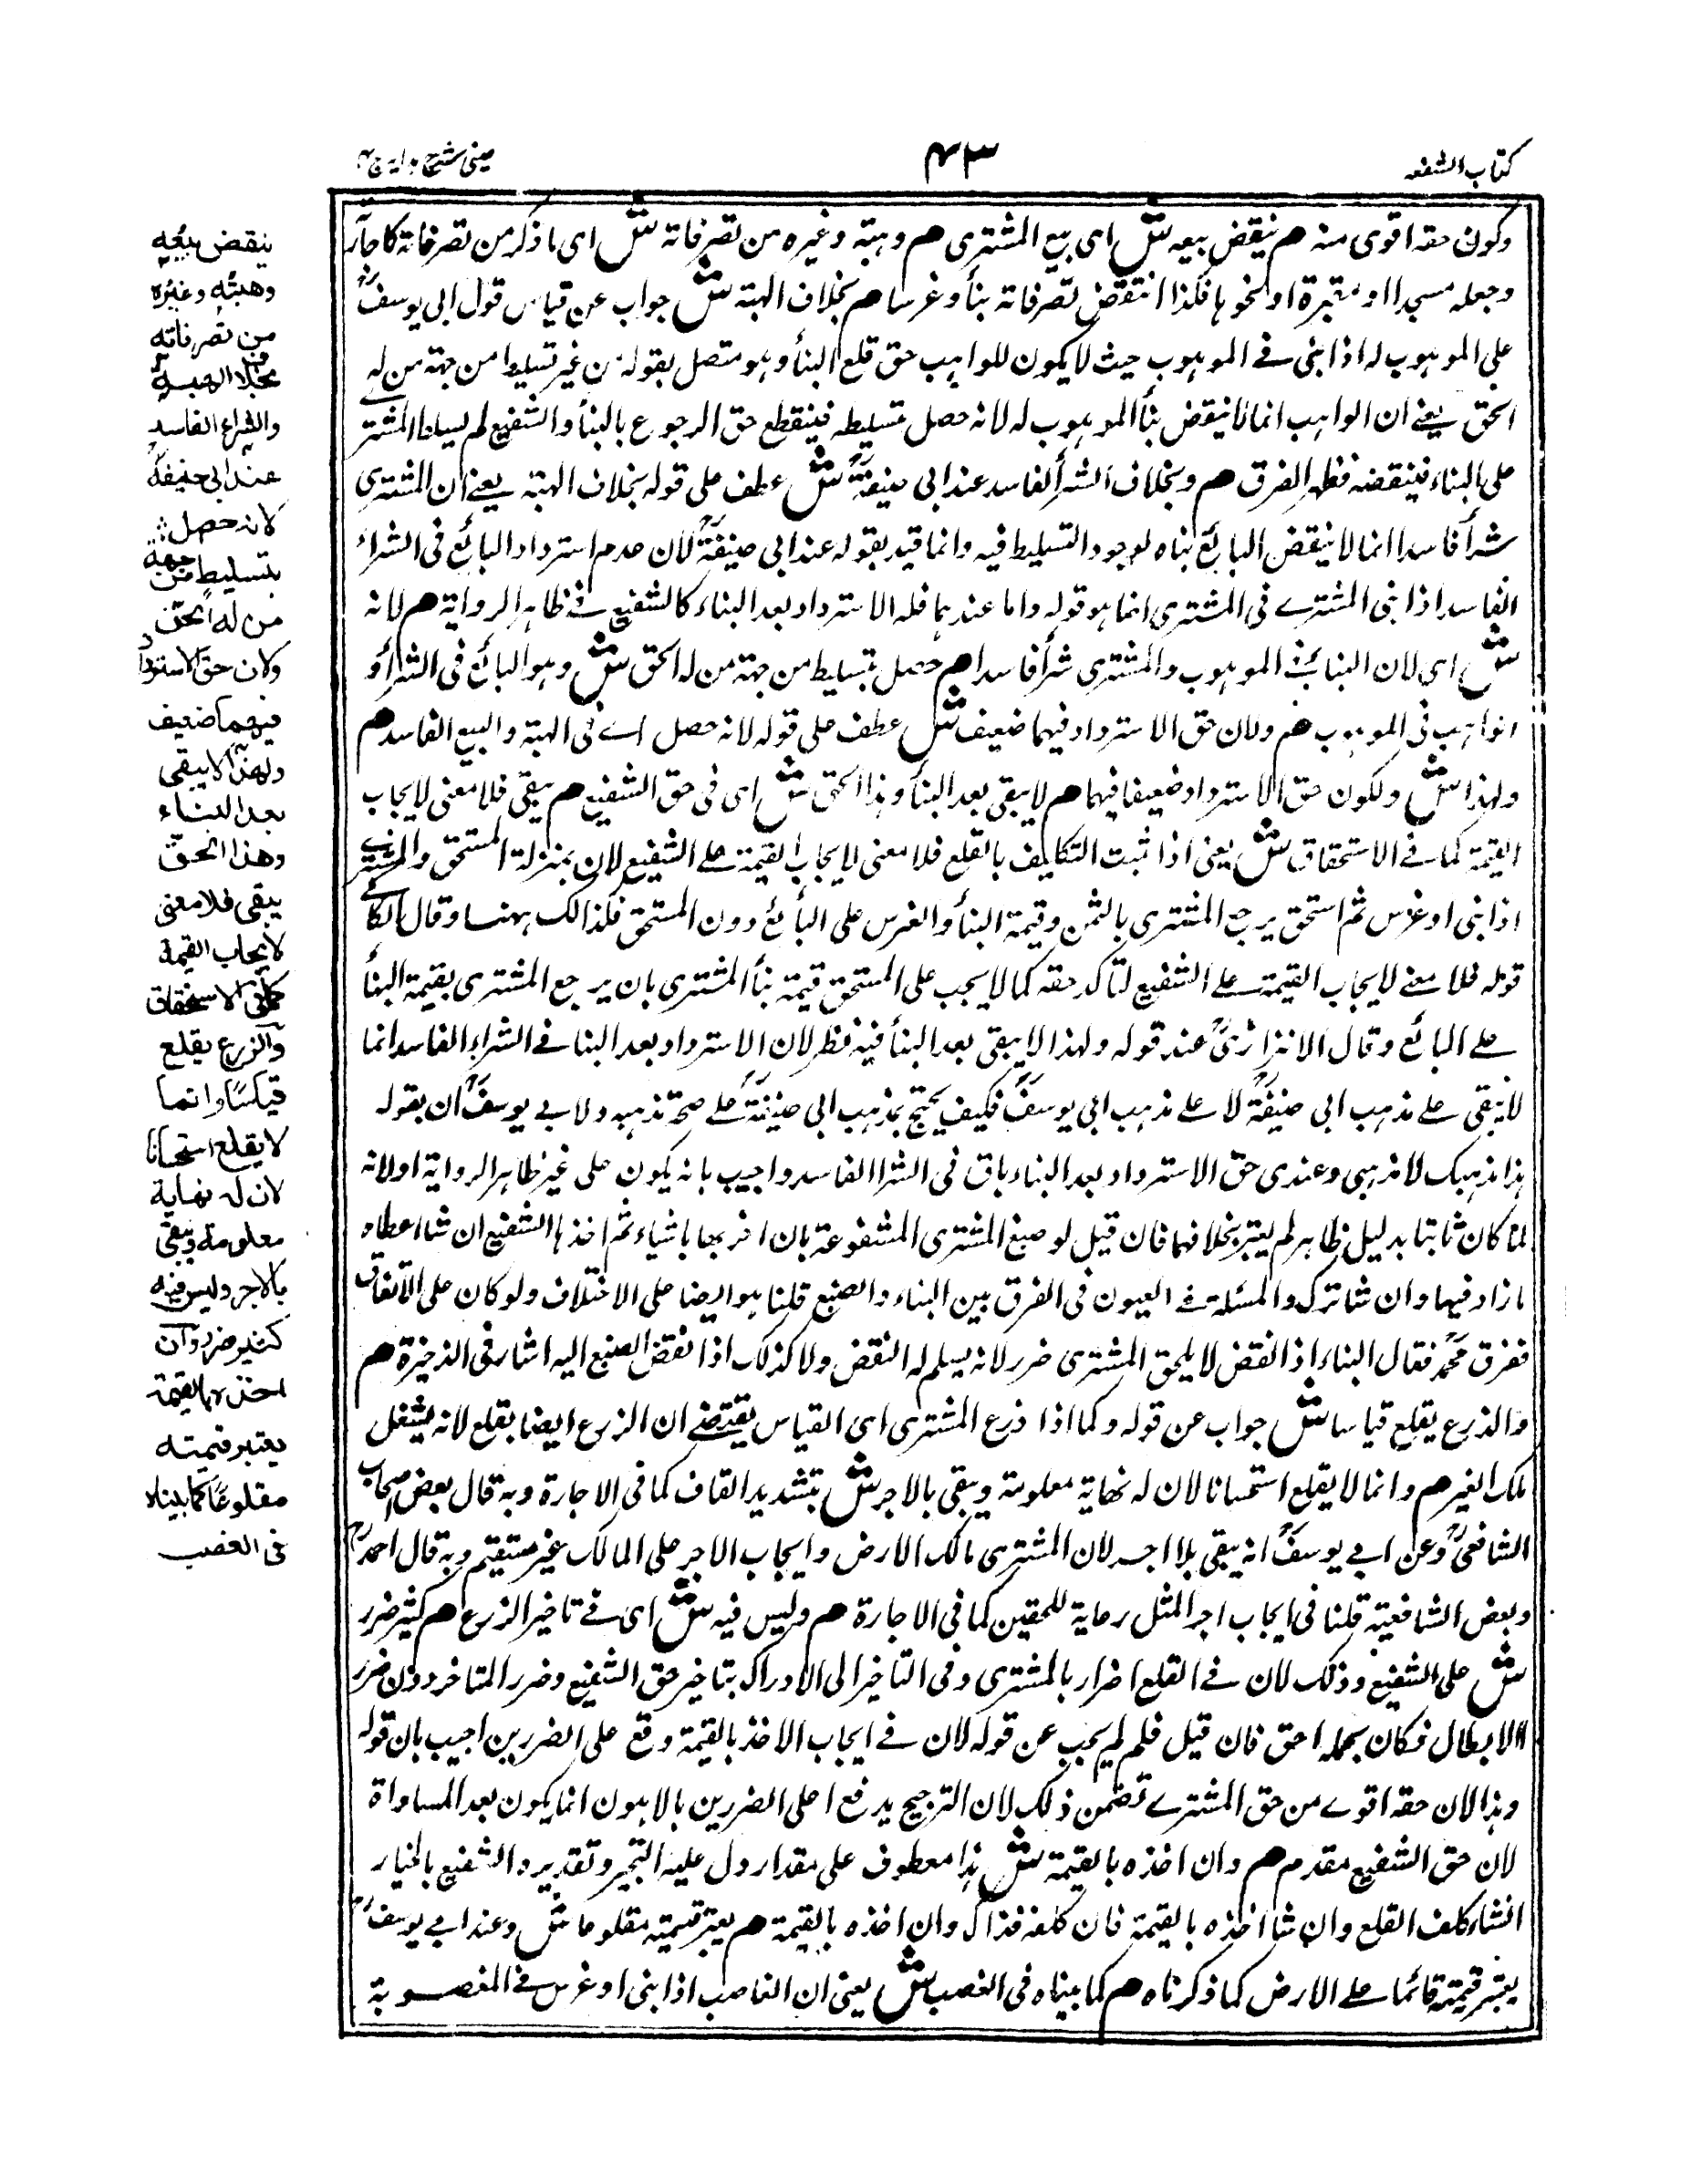 كتاب الشفعه
٤٣
عینی شرح ہدایہ ج ٤
وكون حقه اقوى منه هم ينقض بيعه ش اى بيع المشترى هم وهبته وغيره من تصرفاته ش اى ما ذكر من تصرفاته كاجارته
وجعله مسجدا او مقبرة او نحوها فكذا انتقض تصرفاته بنأ وغرسا هم بخلاف الهبة ش جواب عن قياس قول ابى يوسف
على الموهوب له اذا بنى فى الموهوب حيث لا يكون للواهب حق قلع البنأ وهو متصل بقوله من غير تسليط من جهة من له
الحق يعنى ان الواهب انما لا ينقض بنأ الموهوب له لانه حصل بتسليطه فينقطع حق الرجوع بالبنأ والشفيع لم يسلط المشترى
على البناء فينقضه فظهر الفرق هم وبخلاف الشرأ الفاسد عند ابى حنيفة ش عطف على قوله بخلاف الهبة يعنى ان المشترى
شرأ فاسدا انما لا ينقض البائع بناه لوجود التسليط فيه وانما قيد بقوله عند ابى حنيفة لان عدم استرداد البائع فى الشراء
الفاسد اذا بنى المشترى فى المشترى انما هو قوله واما عندهما فله الاسترداد بعد البناء كالشفيع فى ظاهر الرواية هم لانه
ش اى لان البناء فى الموهوب والمشترى شرأ فاسدا هم حصل بتسليط من جهة من له الحق ش وهو البائع فى الشرأ و
الواهب فى الموهوب هم ولان حق الاسترداد فيهما ضعيف ش عطف على قوله لانه حصل اى فى الهبة والبيع الفاسد هم
ولهذا ش ولكون حق الاسترداد ضعيفا فيهما هم لا يبقى بعد البنأ وهذا الحق ش اى فى حق الشفيع هم يبقى فلا معنى لايجاب
القيمة كما فى الاستحقاق ش يعنى اذا ثبت التكليف بالقلع فلا معنى لايجاب القيمة على الشفيع لان بمنزلة المستحق والمشترى
اذا بنى او غرس ثم استحق يرجع المشترى بالثمن وقيمة البنأ والغرس على البائع دون المستحق فكذالك ههنا وقال الكاكى
قوله فلا معنى لايجاب القيمة على الشفيع لتاكد حقه كما لا يجب على المستحق قيمة بنأ المشترى بان يرجع المشترى بقيمة البنأ
على البائع وقال الاتزازى عند قوله ولهذا لا يبقى بعد البنأ فيه نظر لان الاسترداد بعد البنا فى الشراء الفاسد انما
لا يبقى على مذهب ابى حنيفة لا على مذهب ابى يوسف فكيف يحتج بمذهب ابى حنيفة على صحة مذهبه ولابى يوسف ان يقول
هذا مذهبك لا مذهبى وعندى حق الاسترداد بعد البناء باق فى الشرا الفاسد واجيب بانه يكون على غير ظاهر الرواية او لانه
لما كان ثابتا بدليل ظاهر لم يعتبر بخلافهما فان قيل لو صبغ المشترى المشفوعة بان اخربها باشياء ثم اخذها الشفيع ان شا اعطاه
ما زاد فيها وان شا ترك والمسئلة فى العيون فى الفرق بين البناء والصبغ قلنا هو ايضا على الاختلاف ولو كان على الاتفاق
ففرق محمد فقال البناء اذا نقض لا يلحق المشترى ضرر لانه يسلم له النقض ولا كذلك اذا نقض الصبغ اليه اشار فى الذخيرة هم
والذرع يقلع قياسا ش جواب عن قوله وكما اذا ذرع المشترى اى القياس يقتضى ان الزرع ايضا يقلع لانه يشغل
ملك الغير هم وانما لا يقلع استحسانا لان له نهاية معلومة ويبقى بالاجر ش بتشديد القاف كما فى الاجارة وبه قال بعض اصحاب
الشافعى وعن ابى يوسف انه يبقى بلا اجر لان المشترى مالك الارض وايجاب الاجر على المالك غير مستقيم وبه قال احمد
وبعض الشافعية قلنا فى ايجاب اجر المثل رعاية للحقين كما فى الاجارة هم وليس فيه ش اى فى تاخير الزرع هم كثير ضرر
ش على الشفيع وذلك لان فى القلع اضرار بالمشترى وفى التاخير الى الادراك بتاخير حق الشفيع وضرر المتاخر دون ضرر
الابطال فكان بحمله احق فان قيل فلم لم يجب عن قوله لان فى ايجاب الاخذ بالقيمة وقع على الضررين اجيب بان قوله
وهذا لان حقه اقوى من حق المشترى تضمن ذلك لان الترجيح يدفع اعلى الضررين بالاهون انما يكون بعد المساواة
لان حق الشفيع مقدم هم وان اخذه بالقيمة ش هذا معطوف على مقدار دل عليه التخيير وتقديره الشفيع بالخيار
انشاء كلف القلع وان شا اخذه بالقيمة فان كلفه فذاك وان اخذه بالقيمة هم يعتبر قيمته مقلوعا ش وعند ابى يوسف
يعتبر قيمته قائما على الارض كما ذكرناه هم كما بيناه فى الغصب ش يعنى ان الغاصب اذا بنى او غرس فى المغصوبة
ينقض بيعُه
وهبتُه وغيرُه
من تصرفاته
بخلاف الهبة
والشراء الفاسد
عند ابى حنيفة
لانه حصل
بتسليط من جهة
من له الحق
ولان حق الاسترداد
فيهما ضعيف
ولهذا لا يبقى
بعد البناء
وهذا الحق
يبقى فلا معنى
لايجاب القيمة
كما فى الاستحقاق
والزرع يقلع
قياسًا وانما
لا يقلع استحسانا
لان له نهاية
معلومة ويبقى
بالاجر وليس فيه
كثير ضرر وان
اخذه بالقيمة
يعتبر قيمته
مقلوعًا كما بيناه
فى الغصب